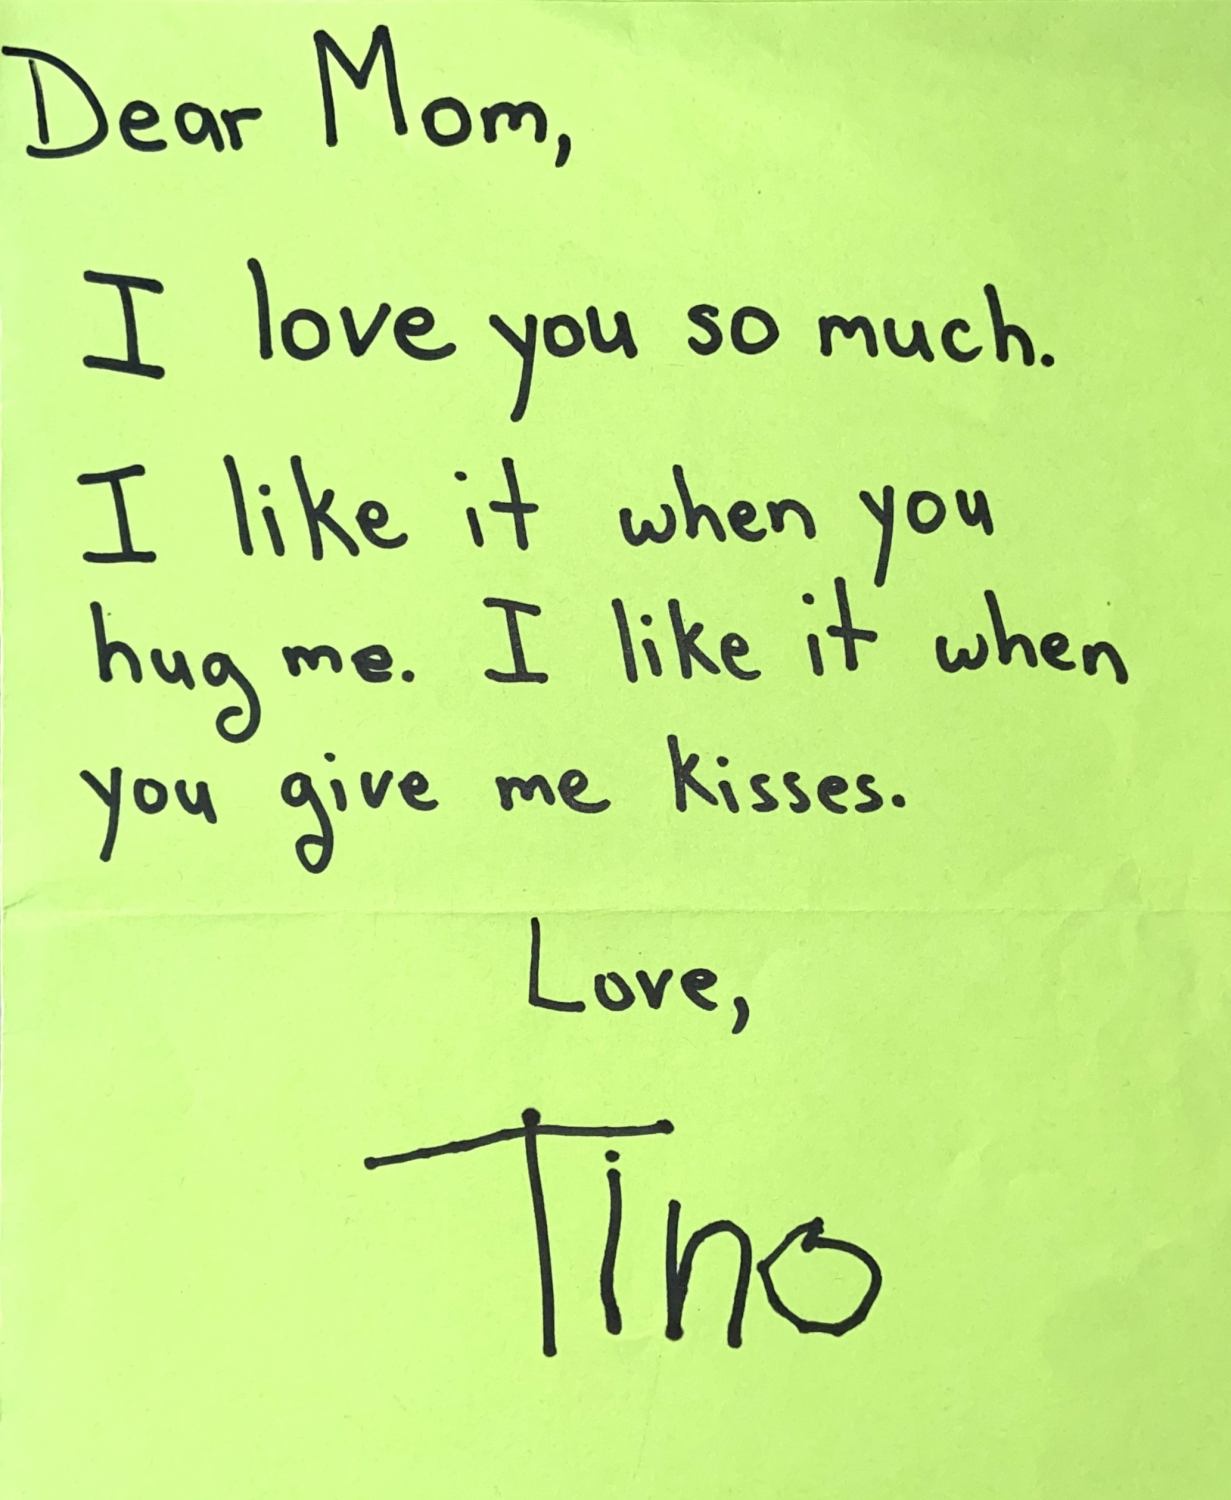 Dear Mom,
I love you so much.
I like it when you
hug me. I like it when
you give me kisses.
Love,
Tino